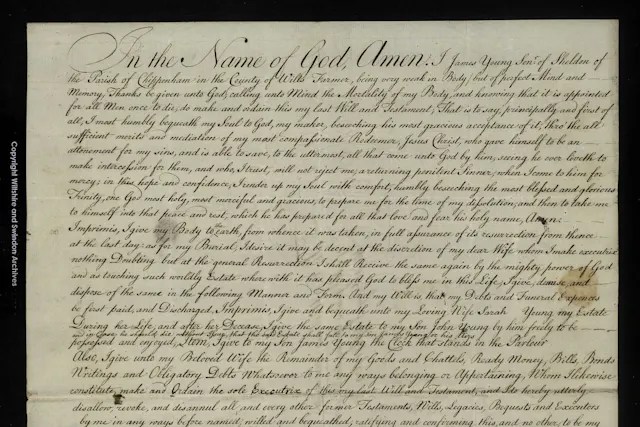 In the Name of God, Amen: I James Young Senr. of Sheldon of
the Parish of Chippenham in the County of Wilts Farmer, being very weak in Body; but of perfect Mind and
Memory, Thanks be given unto God; calling unto Mind the Mortality of my Body, and knowing that it is appointed
for all Men once to die, do make and ordain this my last Will and Testament; That is to say, principally, and first of
all, I most humbly bequeath my Soul to God, my maker, beseeching his most gracious acceptance of it; thro the all
sufficient merits and mediation of my most compassionate Redeemer, Jesus Christ, who gave himself to be an
attonement for my sins, and is able to save, to the uttermost, all that come unto God by him, seeing he ever liveth to
make intercession for them, and who, I trust, will not reject me, a returning penitent Sinner, when I come to him for
mercy; in this hope and confidence, I render up my Soul with comfort, humbly beseeching the most blessed and glorious
Trinity, one God most holy, most merciful and gracious, to prepare me for the time of my dissolution, and then to take me
to himself into that peace and rest, which he has prepared for all that love and fear his holy name, Amen:
Imprimis, I give my Body to the Earth, from whence it was taken, in full assurance of its resurrection from thence
at the last day; as for my Burial, I desire it may be decent at the discretion of my dear Wife whom I make executrix
nothing Doubting but at the general Resurrection I shall Receive the same again by the mighty power of God
and as touching such worldly Estate where with it has pleased God to bless me in this Life, I give, demise, and
dispose of the same in the following Manner and Form. And my Will is, that my Debts and Funeral Expences
be first paid, and Discharged, Imprimis, I give and bequeath unto my Loving Wife Sarah Young my Estate
During her Life, and after her Decease, I give the same Estate to my Son John Young by him freely to be
possessed and enjoyed, Item, I give to my Son James Young the Clock that stands in the Parlour
Also, I give unto my Beloved Wife the Remainder of my Goods and Chattels, Ready Money, Bills, Bonds
Writings and Obligatory Debts Whatsoever to me any ways belonging or Appertaining, Whom I likewise
constitute, make and Ordain the sole Executrix of this my last Will and Testament, and I do hereby utterly
disallow, revoke, and disannul all, and every other former Testaments, Wills, Legacies, Bequests and Executors
by me in any ways before named, willed and bequeathed, ratifying and confirming this, and no other to be my
Copyright Wiltshire and Swindon Archives